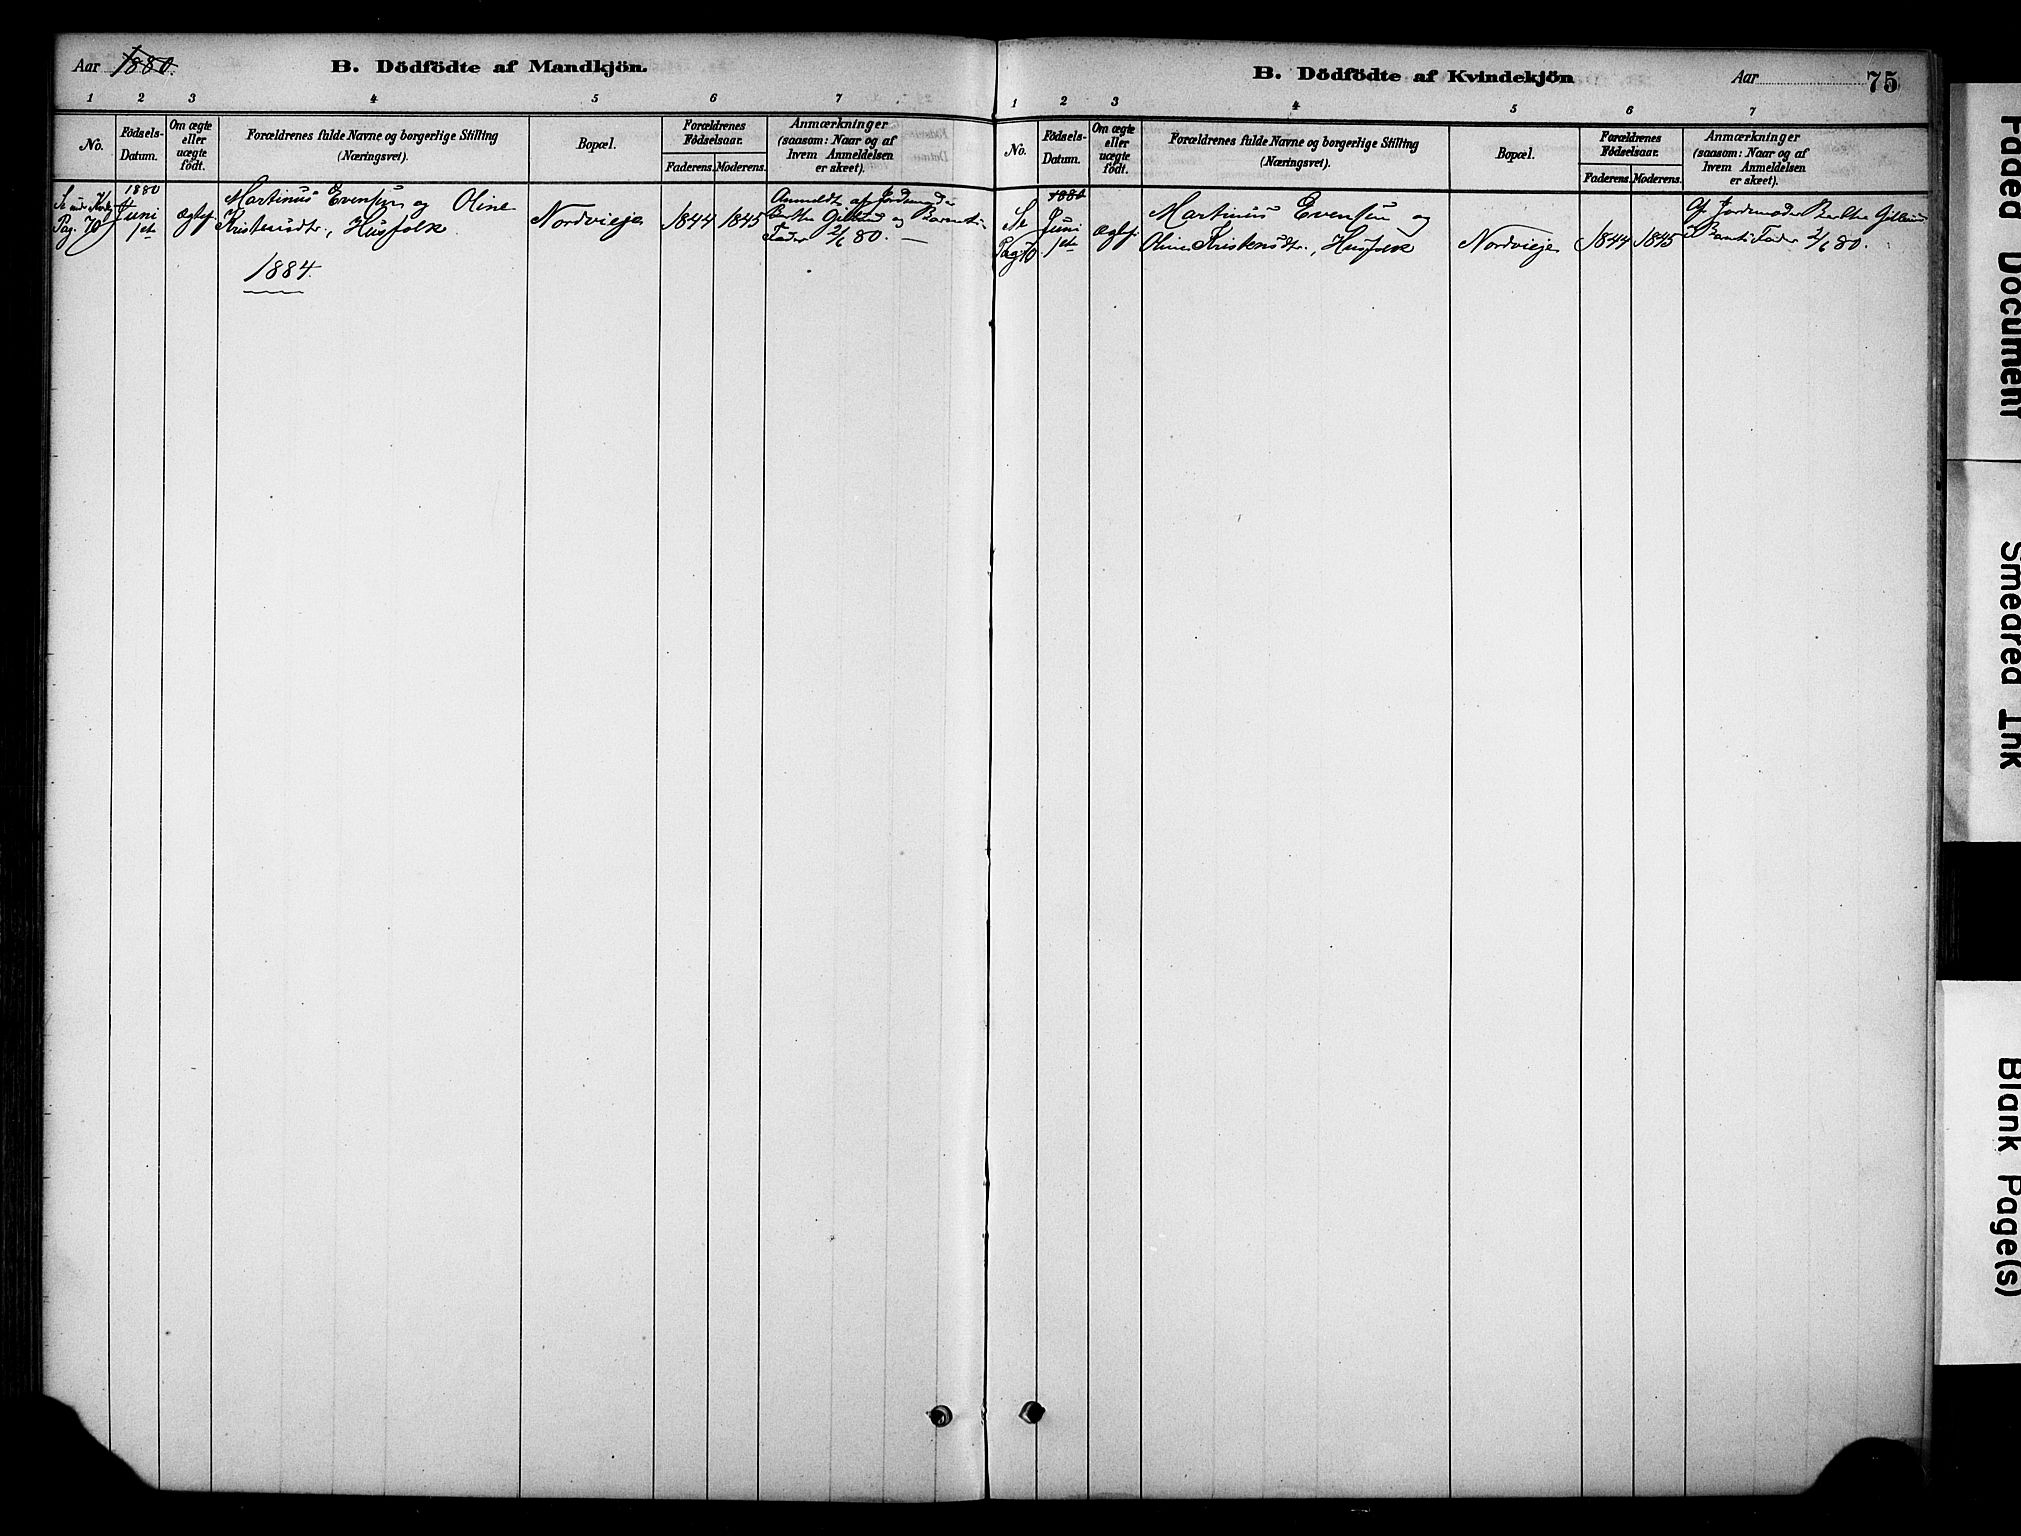 Aar 1880.
B. Dödfödte af Mandkjön.
1 2 3 4 5 6 7
No.
Födsels-
Datum.
Om ægte
eller
uægte
födt.
Forældrenes fulde Navne og borgerlige Stilling
(Næringsvei).
Bopæl.
Forældrenes
Födselsaar.
Faderens. Moderens.
Anmærkninger
(saasom: Naar og af
hvem Anmeldelsen
er skeet).
Pag. 70
1880
Juni
1ste
Ægtef.
Martinus Evensen og Oline
Kristensdtr., Husfolk
Nordvieje
1844 1845
Anmeldt af Jordemod.
Berthe og Barnets
Fader 2/6 80. —
1884.
B. Dödfödte af Kvindekjön
Aar
75
1 2 3 4 5 6 7
No.
Födsels-
Datum.
Om ægte
eller
uægte
födt.
Forældrenes fulde Navne og borgerlige Stilling
(Næringsvei).
Bopæl.
Forældrenes
Födselsaar.
Faderens. Moderens.
Anmærkninger
(saasom: Naar og af
hvem Anmeldelsen
er skeet).
Se
Pag 70
1880
Juni
1ste
Ægtef.
Martinus Evensen og
Oline Kristensdtr., Husfolk
Nordvieje
1844 1845
Af Jordemoder Berthe
Barnets Fader 2/6 80.
Faded Document
Smeared Ink
Blank Page(s)